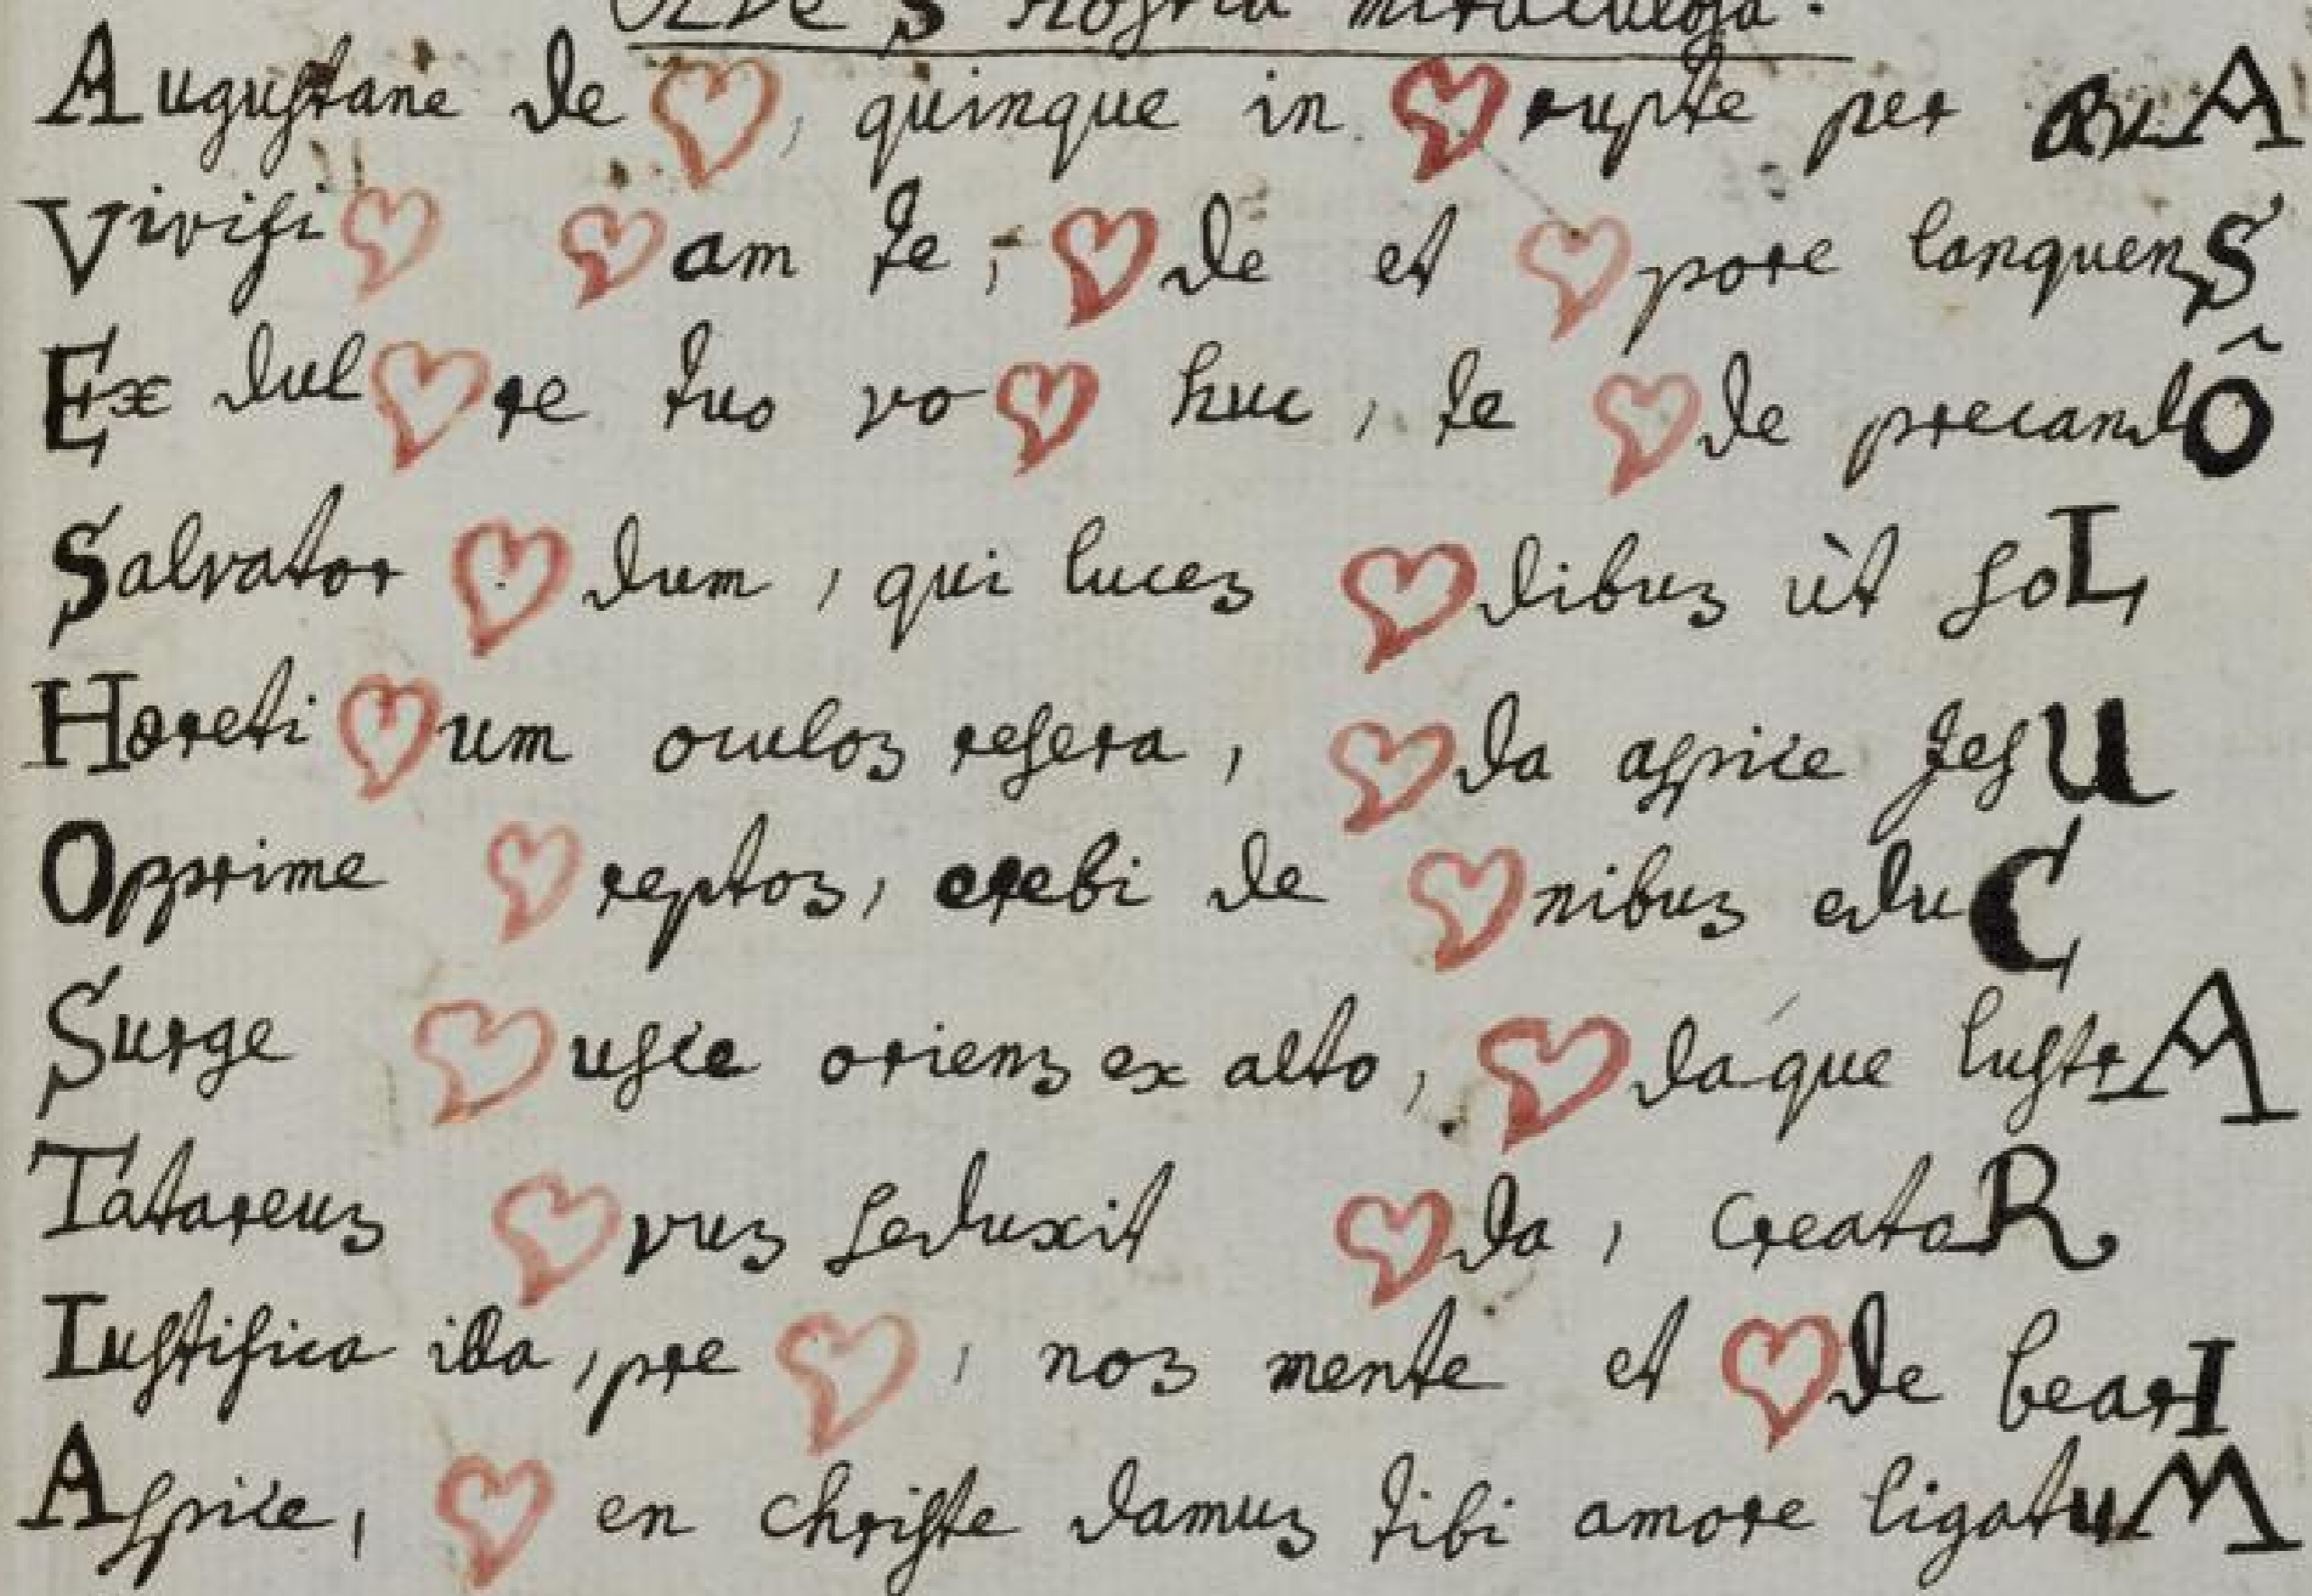 S nostra miraculosa.
Augustane de ♥, quinque in ♥rupte per A
Vivifi♥ ♥am te, ♥de et ♥pore languenS
Ex dul♥re tuo vo♥ huc, te ♥de precandÔ
Salvator ♥dum, qui luces ♥dibus ùt soL
Hæreti♥um oculos resera, ♥da aspice JesU
Opprime ♥reptos, crebi de ♥nibus eduC
Surge ♥usce oriens ex alto, ♥daque lustrA
Tatareus ♥vus seduxit ♥da, CreatoR
Iustifica illa, pre♥, nos mente et ♥de bearI
Aspice, ♥ en christe damus tibi amore ligatuM